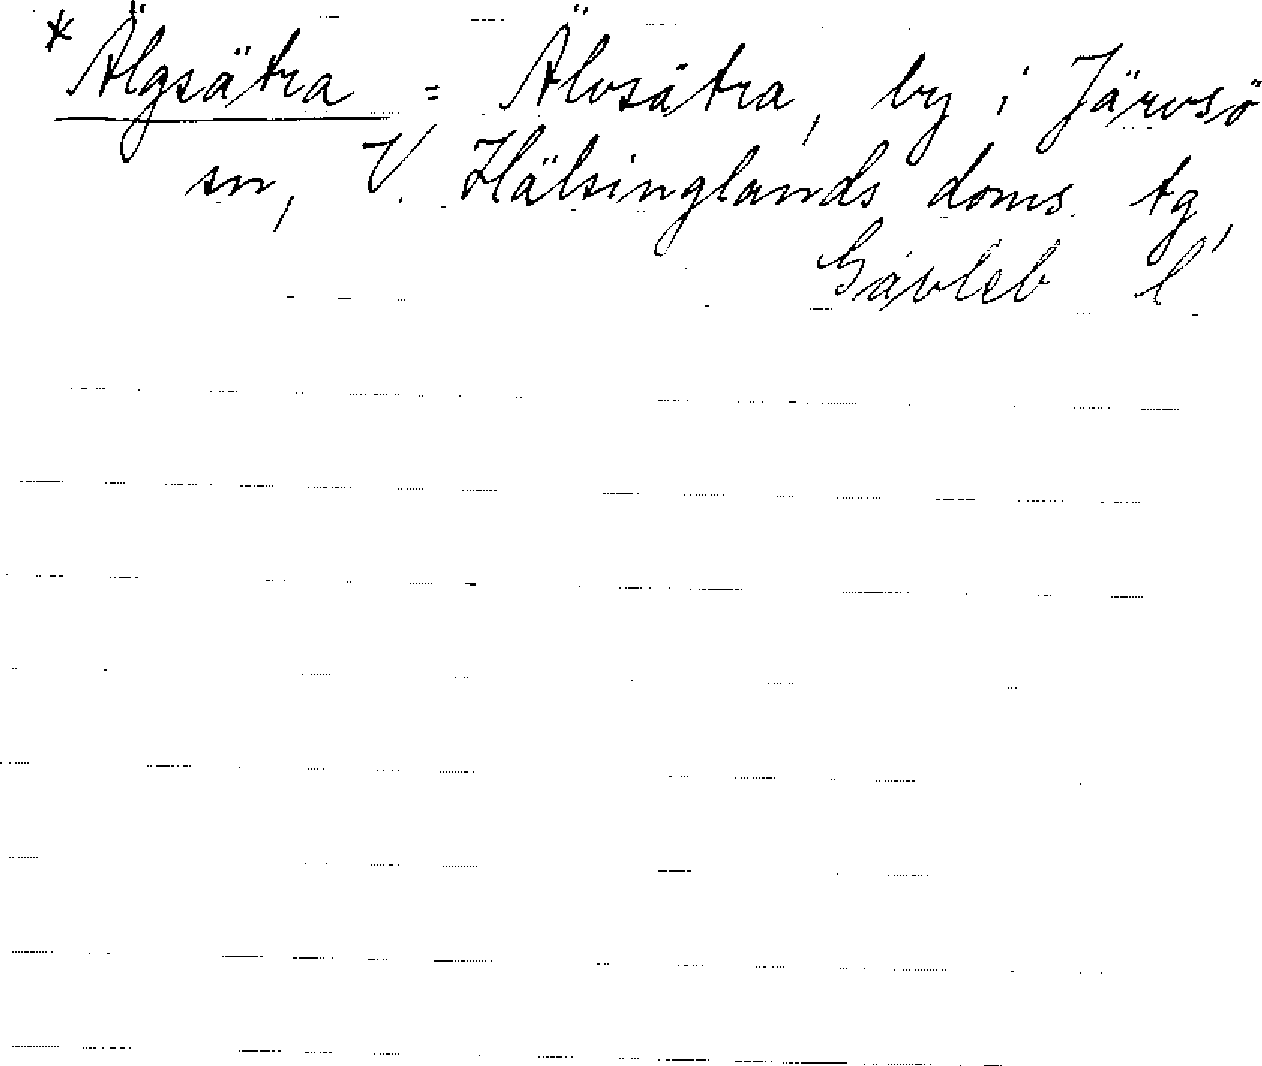 *Älgsätra = Älvsätra, by i Järvsö
sn, V. Hälsinglands doms. tg,
Gävleb l